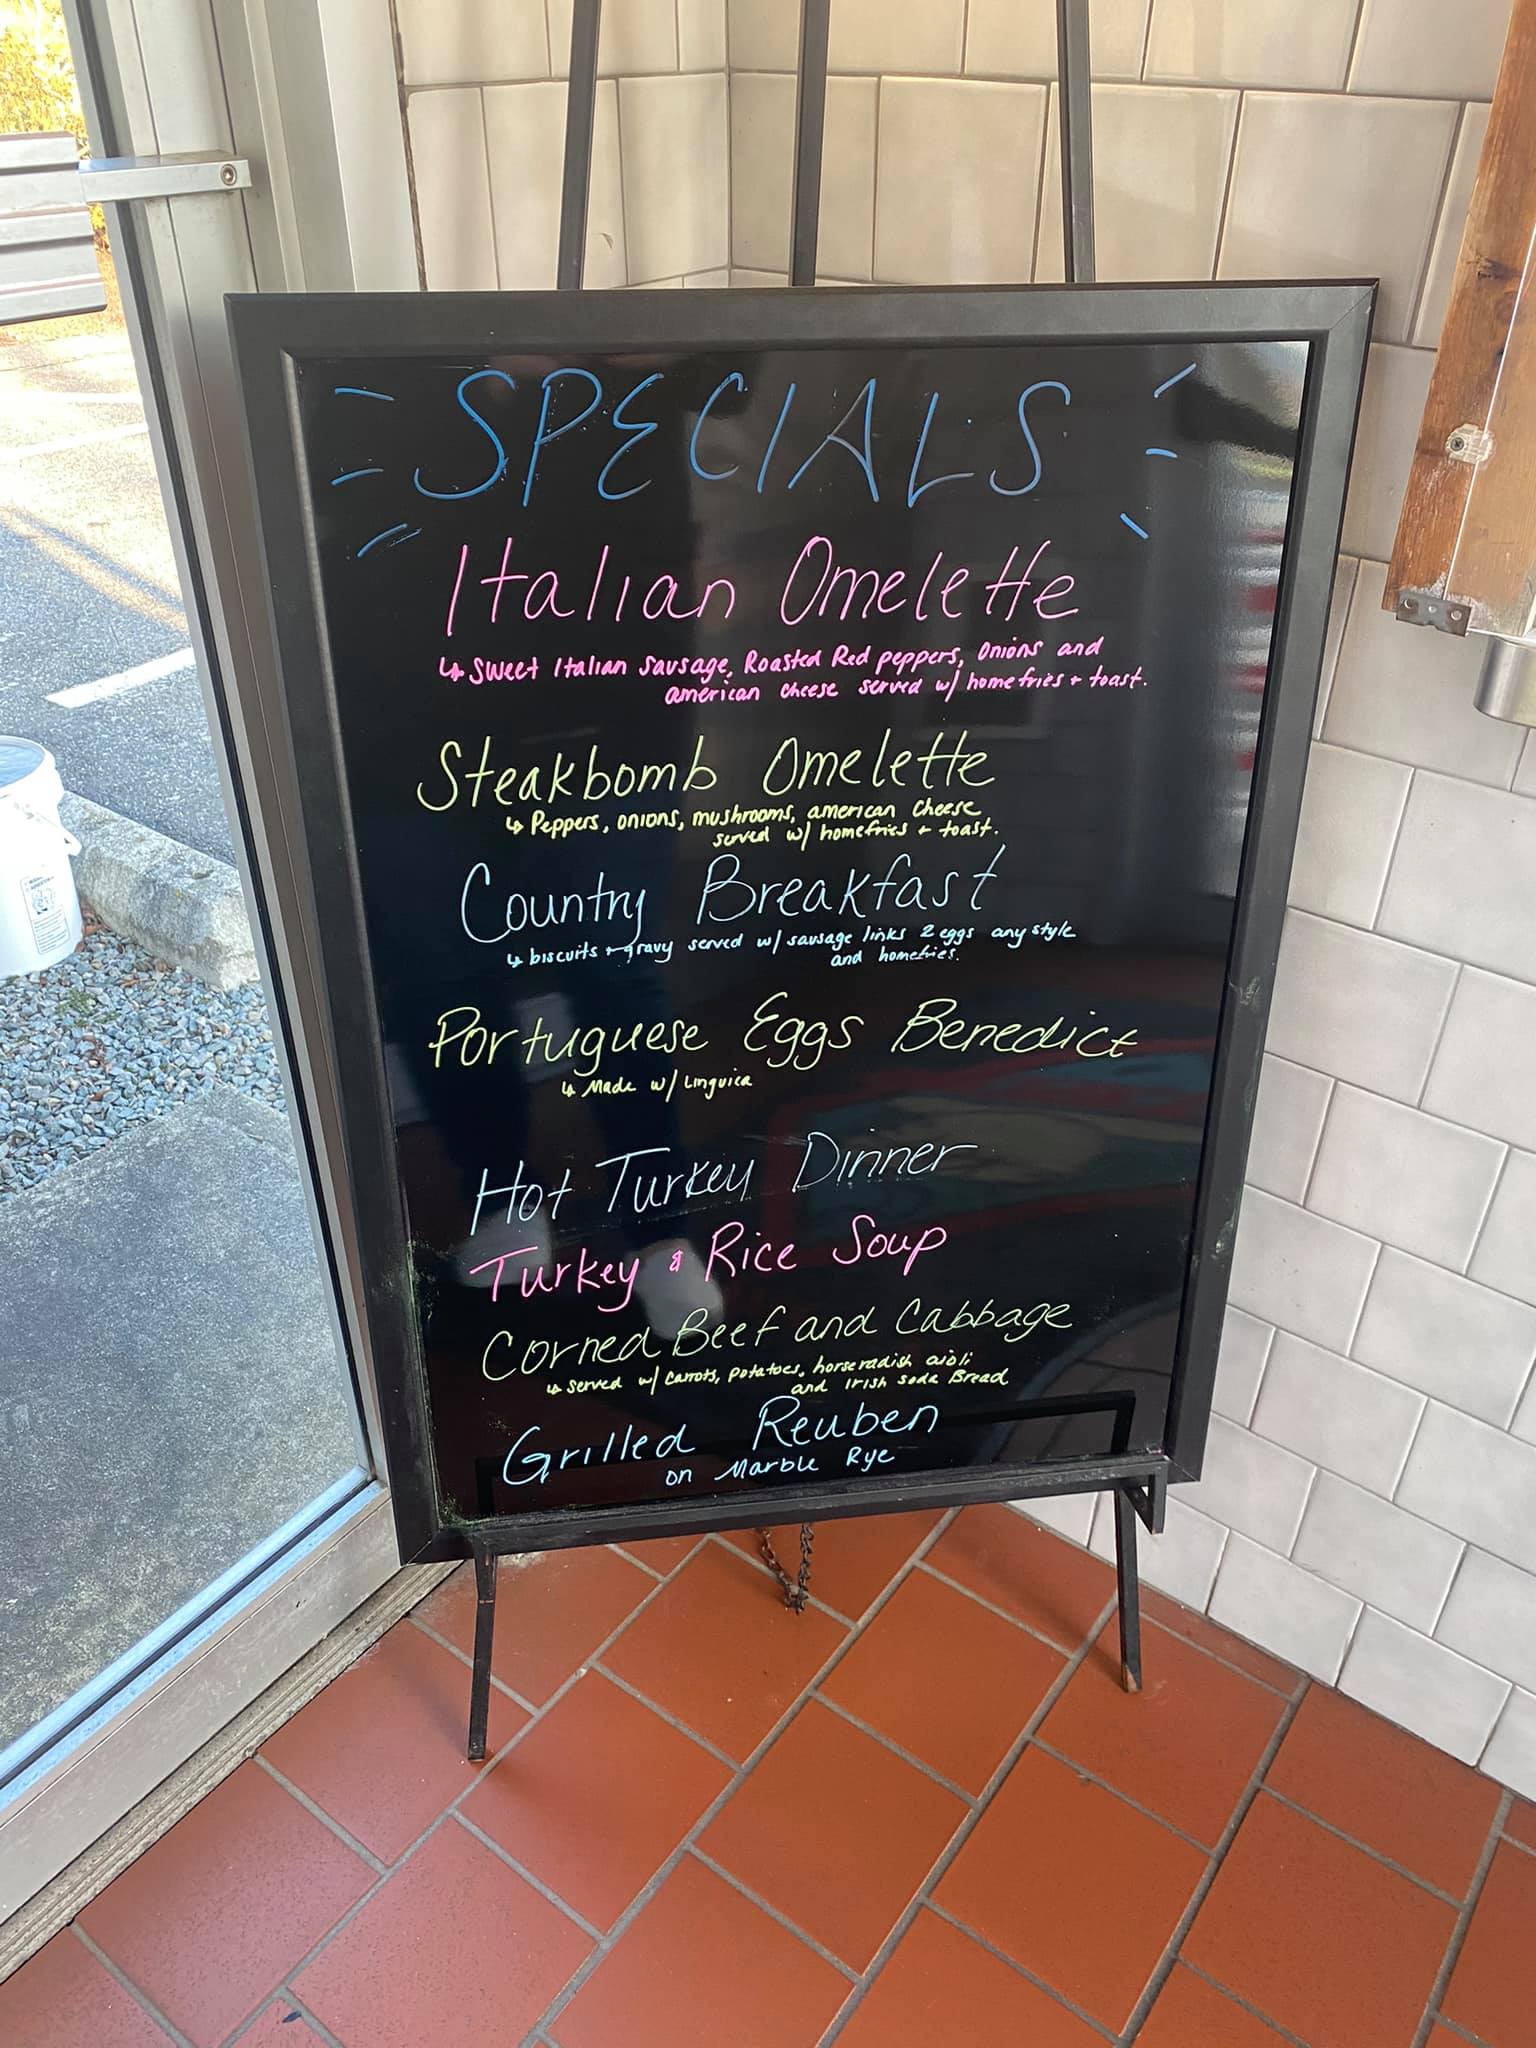 SPECIALS
Italian Omelette
↳ Sweet Italian Sausage, Roasted Red peppers, Onions and
american cheese served w/ homefries + toast.
Steakbomb Omelette
↳ Peppers, onions, mushrooms, american cheese
served w/ homefries + toast.
Country Breakfast
↳ biscuits + gravy served w/ sausage links 2 eggs any style
and homefries.
Portuguese Eggs Benedict
↳ Made w/ Linguica
Hot Turkey Dinner
Turkey & Rice Soup
Corned Beef and Cabbage
↳ served w/ carrots, potatoes, horseradish aioli
and Irish soda Bread
Grilled Reuben
on Marble Rye